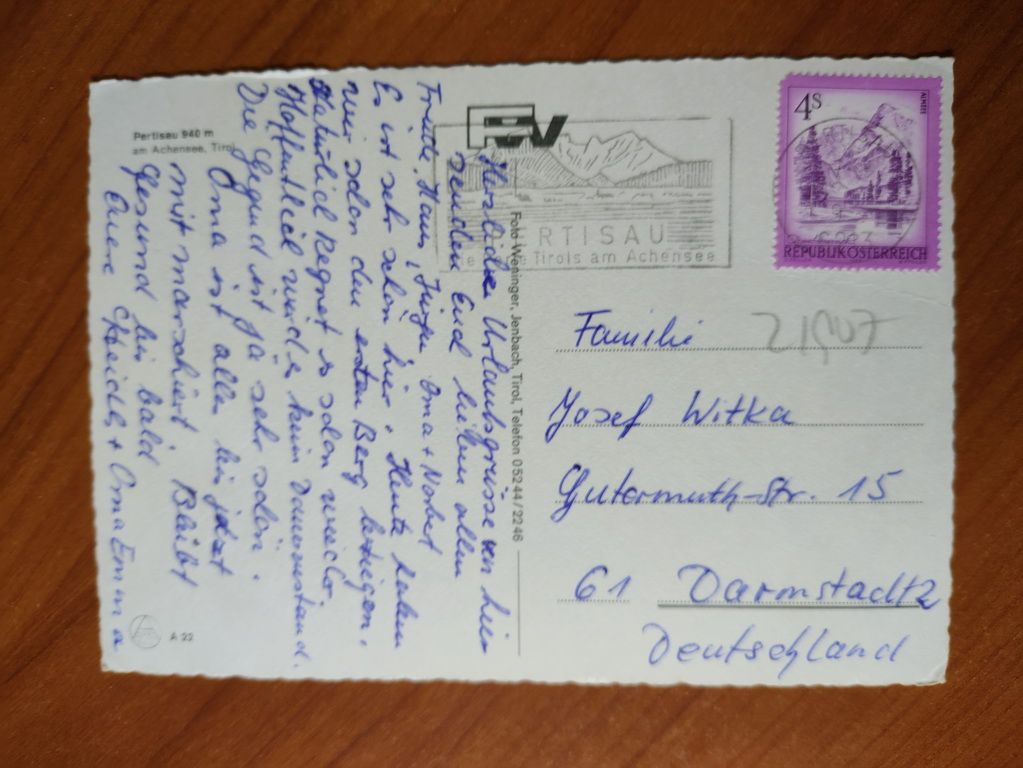 Pertisau 940 m
am Achensee, Tirol
Herzliche Urlaubsgrüsse von hier
senden Euch lieben allen
Traudl, Hans, Jürgen, Oma + Norbert
Es ist sehr schön hier. Heute haben
wir schon den ersten Berg bestiegen.
Natürlich Regnet es schon wieder.
Hoffentlich wird es kein Dauerzustand.
Die Gegend ist ja sehr schön.
Oma ist alles bis jetzt
mit marschiert. Bleibt
Gesund bis bald
Eure + Oma Emma
A 22
Foto Weninger, Jenbach, Tirol, Telefon 05244/2246
PERTISAU
Tirols am Achensee
4S
ALMSEE
REPUBLIK ÖSTERREICH
21907
Familie
Josef Witka
Gutermuth-Str. 15
61 Darmstadt 2
Deutschland